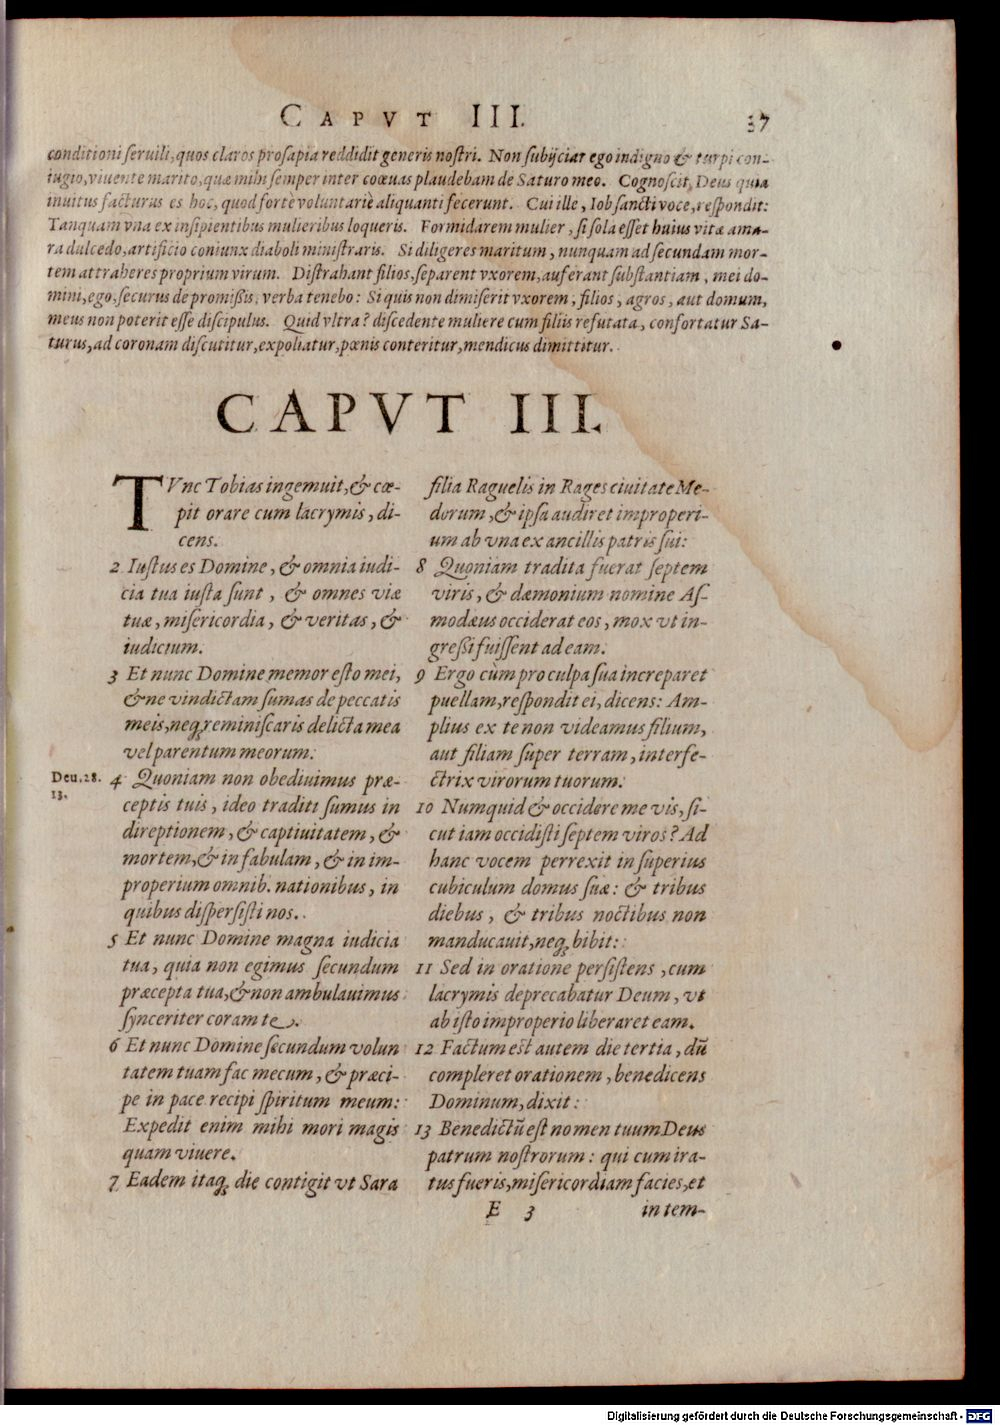 CAPVT III. 37
conditioni ſeruili, quos claros proſapia reddidit generis noſtri. Non ſubijciar ego indigno & turpi con-
iugio, viuente marito, quæ mihi ſemper inter coæuas plaudebam de Saturo meo. Cognoſcit, Deus quia
inuitus facturus es hoc, quod fortè voluntariè aliquanti fecerunt. Cui ille, Iob ſancti voce, reſpondit:
Tanquam vna ex inſipientibus mulieribus loqueris. Formidarem mulier, ſi ſola eſſet huius vitæ ama-
ra dulcedo, artificio coniunx diaboli miniſtraris. Si diligeres maritum, nunquam ad ſecundam mor-
tem attraheres proprium virum. Diſtrahant filios, ſeparent vxorem, auferant ſubſtantiam, mei do-
mini, ego, ſecurus de promißis, verba tenebo: Si quis non dimiſerit vxorem, filios, agros, aut domum,
meus non poterit eſſe diſcipulus. Quid vltra? diſcedente muliere cum filiis refutata, confortatur Sa-
turus, ad coronam diſcutitur, expoliatur, pœnis conteritur, mendicus dimittitur.
CAPVT III.
TVnc Tobias ingemuit, & cœ-
pit orare cum lacrymis, di-
cens.
2 Iuſtus es Domine, & omnia iudi-
cia tua iuſta ſunt, & omnes viæ
tuæ, miſericordia, & veritas, &
iudicium.
3 Et nunc Domine memor eſto mei,
& ne vindictam ſumas de peccatis
meis, neq; reminiſcaris delicta mea
vel parentum meorum:
Deu. 28.
13.
4 Quoniam non obediuimus præ-
ceptis tuis, ideo traditi ſumus in
direptionem, & captiuitatem, &
mortem, & in fabulam, & in im-
properium omnib. nationibus, in
quibus diſperſiſti nos.
5 Et nunc Domine magna iudicia
tua, quia non egimus ſecundum
præcepta tua, & non ambulauimus
ſynceriter coram te.
6 Et nunc Domine ſecundum volun
tatem tuam fac mecum, & præci-
pe in pace recipi ſpiritum meum:
Expedit enim mihi mori magis
quam viuere.
7 Eadem itaq; die contigit vt Sara
filia Raguelis in Rages ciuitate Me-
dorum, & ipſa audiret improperi-
um ab vna ex ancillis patris ſui:
8 Quoniam tradita fuerat ſeptem
viris, & dæmonium nomine Aſ-
modæus occiderat eos, mox vt in-
greßi fuiſſent ad eam.
9 Ergo cùm pro culpa ſua increparet
puellam, reſpondit ei, dicens: Am-
plius ex te non videamus filium,
aut filiam ſuper terram, interfe-
ctrix virorum tuorum:
10 Numquid & occidere me vis, ſi-
cut iam occidiſti ſeptem viros? Ad
hanc vocem perrexit in ſuperius
cubiculum domus ſuæ: & tribus
diebus, & tribus noctibus non
manducauit, neq; bibit:
11 Sed in oratione perſiſtens, cum
lacrymis deprecabatur Deum, vt
ab iſto improperio liberaret eam.
12 Factum eſt autem die tertia, dū
compleret orationem, benedicens
Dominum, dixit:
13 Benedictū eſt nomen tuum Deus
patrum noſtrorum: qui cum ira-
tus fueris, miſericordiam facies, et
E 3 in tem-
Digitalisierung gefördert durch die Deutsche Forschungsgemeinschaft - DFG